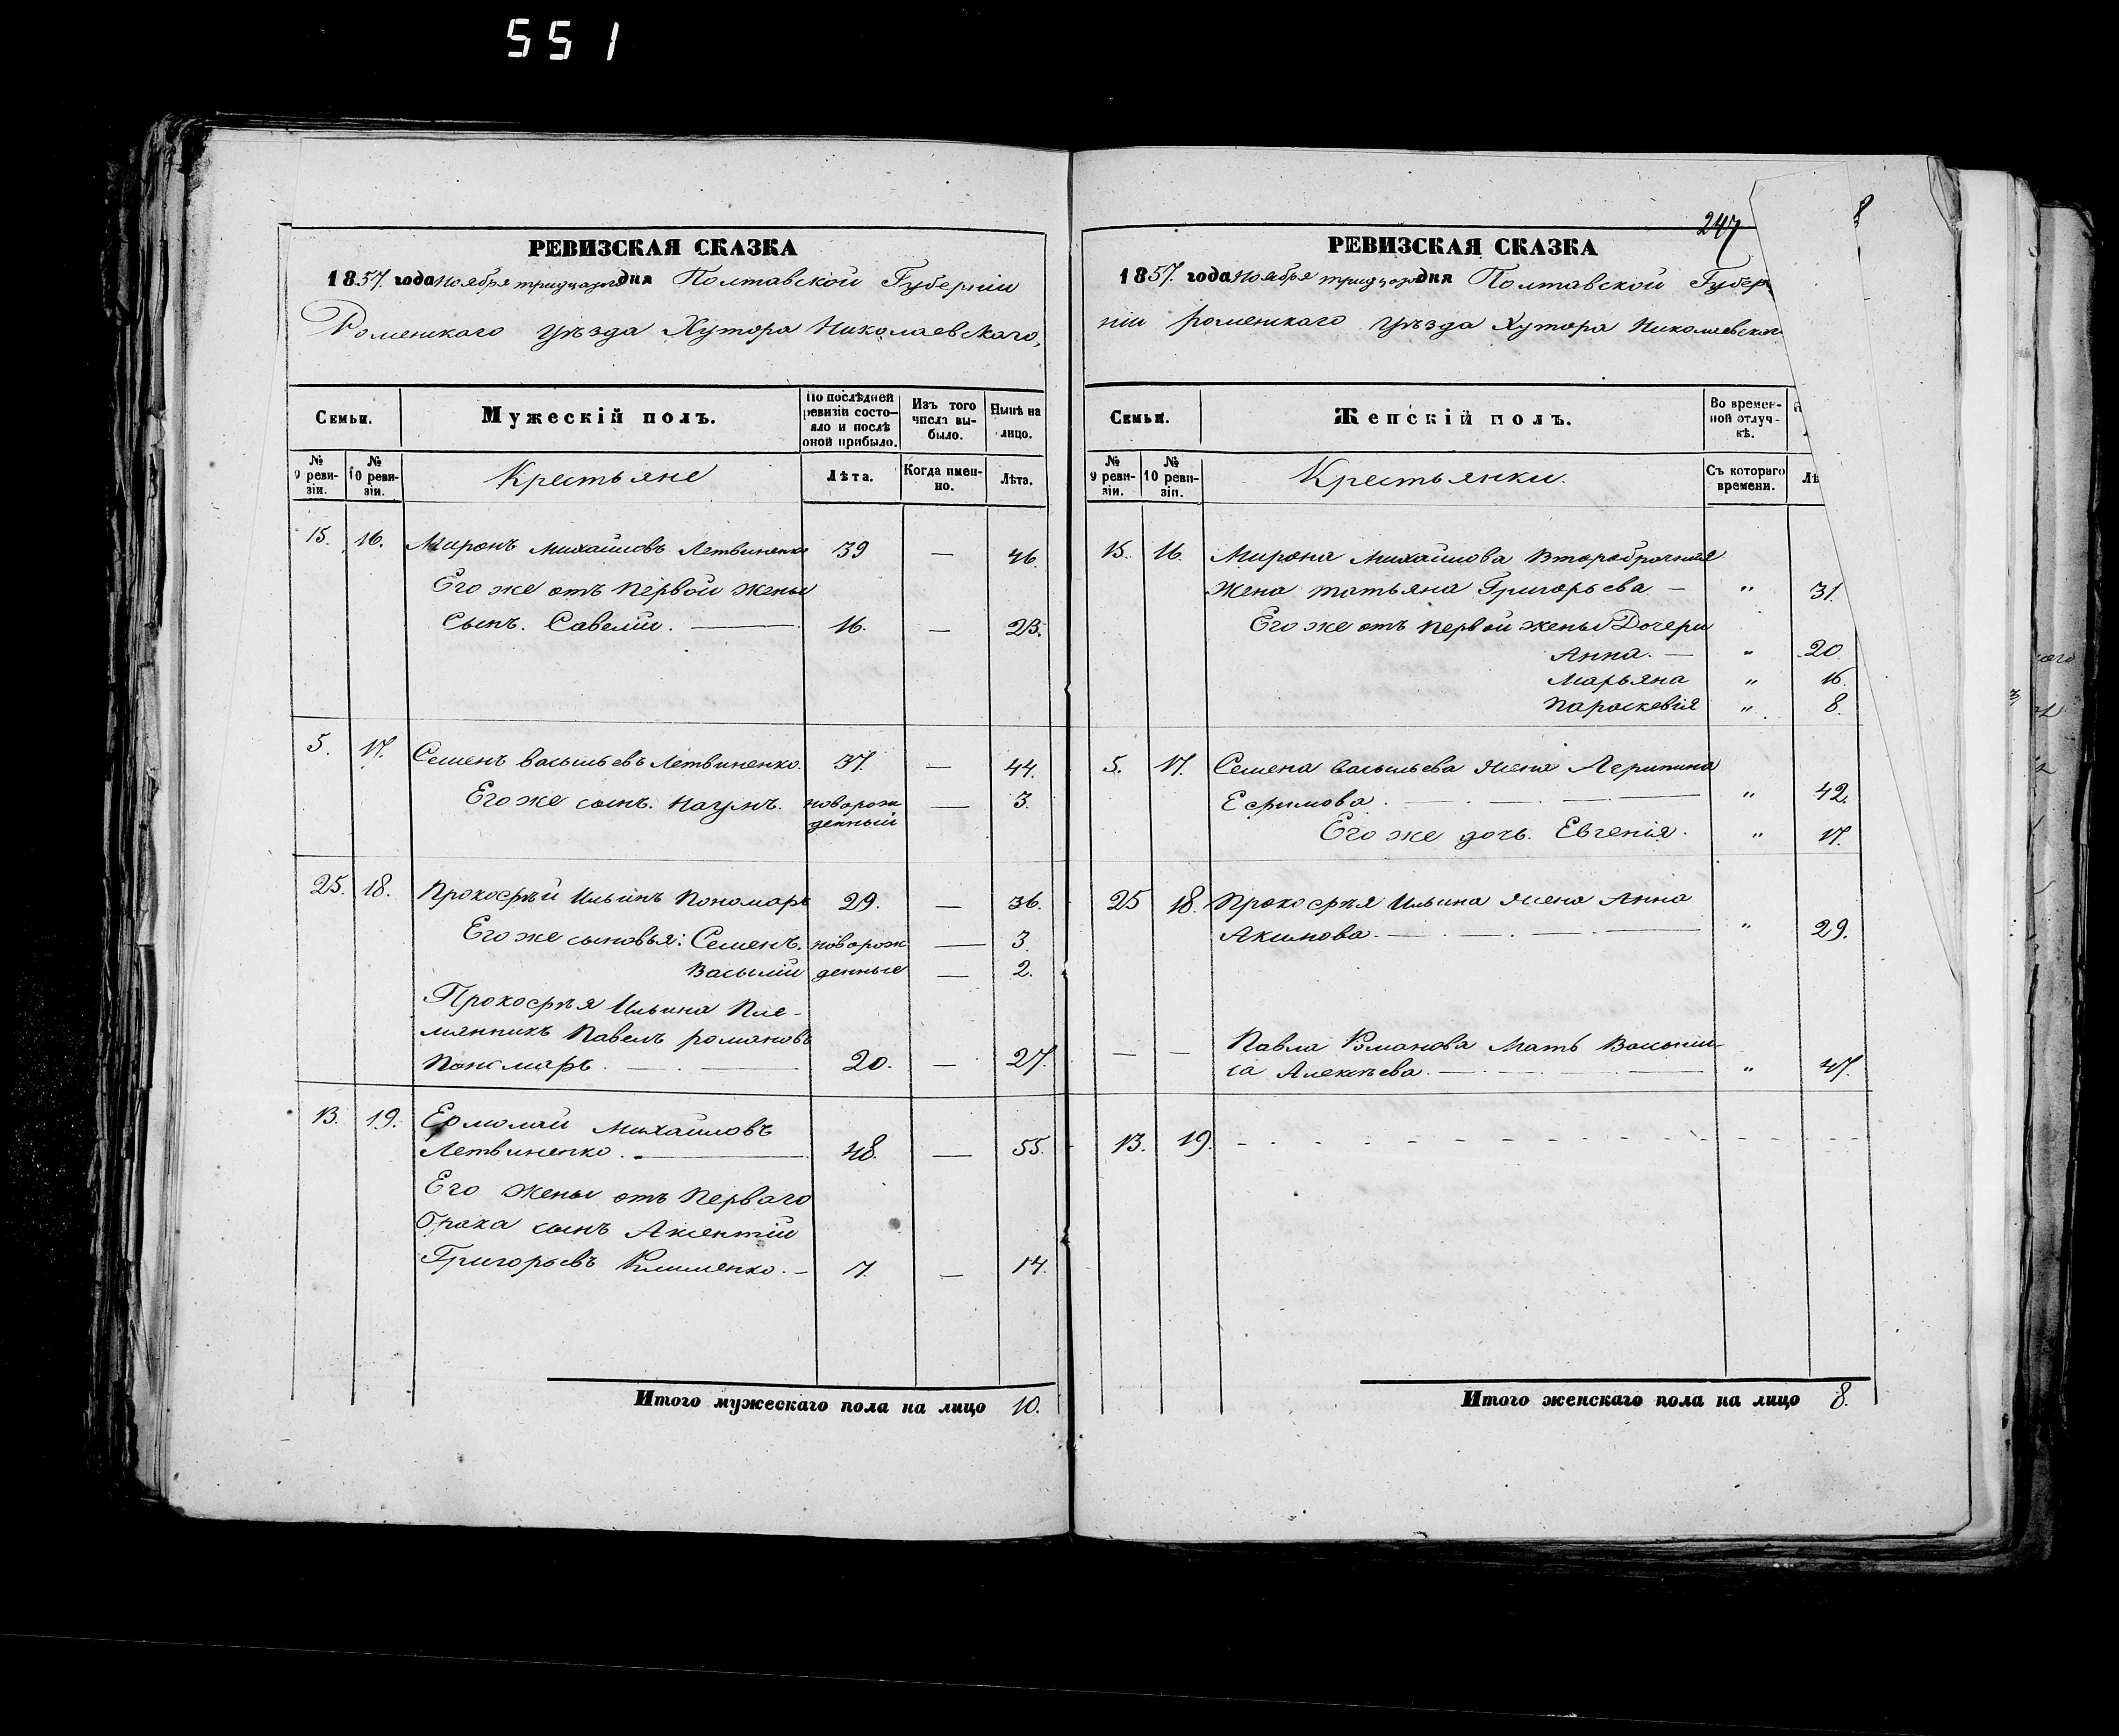 551
РЕВИЗСКАЯ СКАЗКА
1857. года Ноября тридцатого дня Полтавской Губерніи
Роменскаго уѣзда Хутора Николаевскаго,
Семьи.
Мужескій полъ.
По послѣдней ревизіи состояло и послѣ оной прибыло.
Изъ того числа выбыло.
Нынѣ на лицо.
№ 9 ревизіи.
№ 10 ревизіи.
Крестьяне
Лѣта.
Когда именно.
Лѣта.
15. 16. Миронъ Михайловъ Летвиненко 39 — 46.
Его же отъ первой жены
Сынъ. Савелій. — 16. — 23.
5. 17. Семенъ Васильевъ Летвиненко. 37. — 44.
Его же сынъ. Наумъ. новорож — 3.
денный
25. 18. Прокофѣй Ильинъ Пономарь 29. — 36.
Его же сыновья: Семенъ. новорож — 3.
Василій денные — 2.
Прокофѣя Ильина Пле-
мянникъ Павелъ Романовъ
Пономарь. — 20. — 27.
13. 19. Ермолай Михайловъ
Летвиненко. — 48. — 55.
Его жены отъ перваго
брака сынъ Аксентій
Григорьевъ Клименко. — 7. — 14.
Итого мужескаго пола на лицо 10.
247
8
РЕВИЗСКАЯ СКАЗКА
1857. года Ноября тридцатого дня Полтавской Губер
ніи Роменскаго уѣзда Хутора Николаевскаг
Семьи.
Женскій полъ.
Во временной отлучкѣ.
№ 9 ревизіи.
№ 10 ревизіи.
Крестьянки.
Съ котораго времени.
Лѣ
15. 16. Мирона Михайлова второбрачная
жена Татьяна Григорьева — " 31.
Его же отъ первой жены Дочери
Анна. — " 20.
Марьяна " 16.
Параскевія " 8.
5. 17. Семена Васильева жена Агрипина
Ефимова. — " 42.
Его же дочь. Евгенія. " 17.
25 18. Прокофѣя Ильина жена Анна
Акимова. — " 29.
— — Павла Романова Мать Васили-
са Алексѣева. — " 47.
13. 19. - - - - - - - - - - - - - - -
Итого женскаго пола на лицо 8.